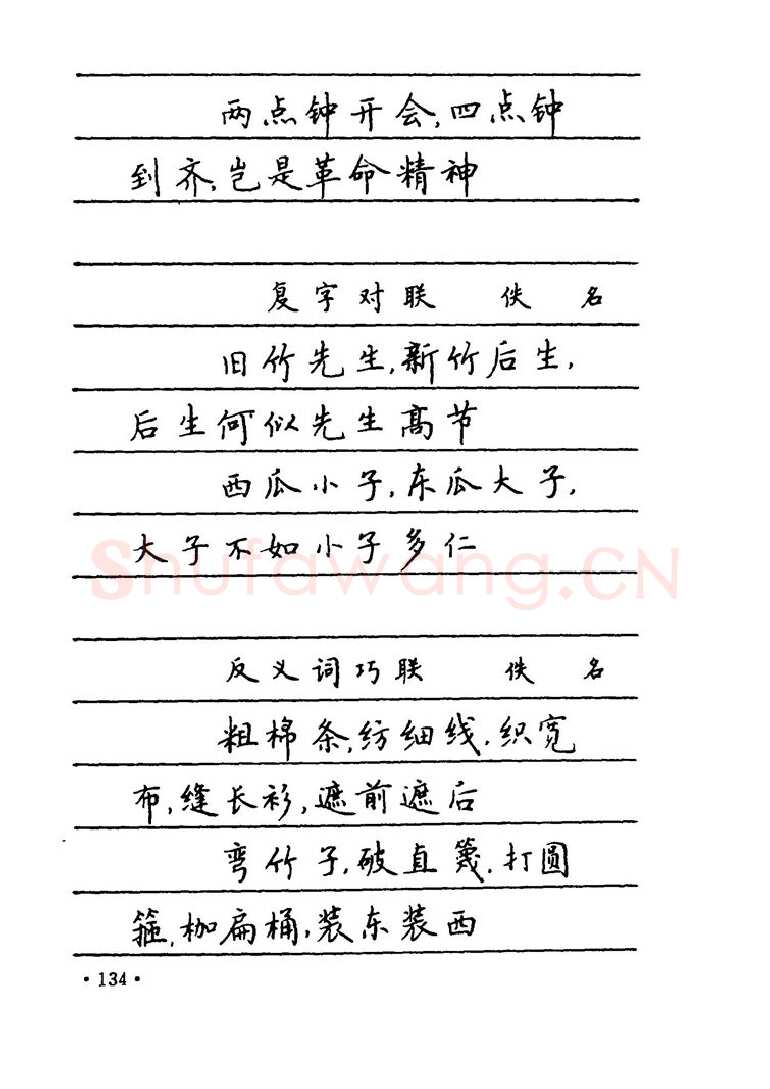 两点钟开会,四点钟
到齐,岂是革命精神
复字对联 佚名
旧竹先生,新竹后生,
后生何似先生高节
西瓜小子,东瓜大子,
大子不如小子多仁
shufawang.CN
反义词巧联 佚名
粗棉条,纺细线,织宽
布,缝长衫,遮前遮后
弯竹子,破直篾,打圆
箍,枷扁桶,装东装西
·134·